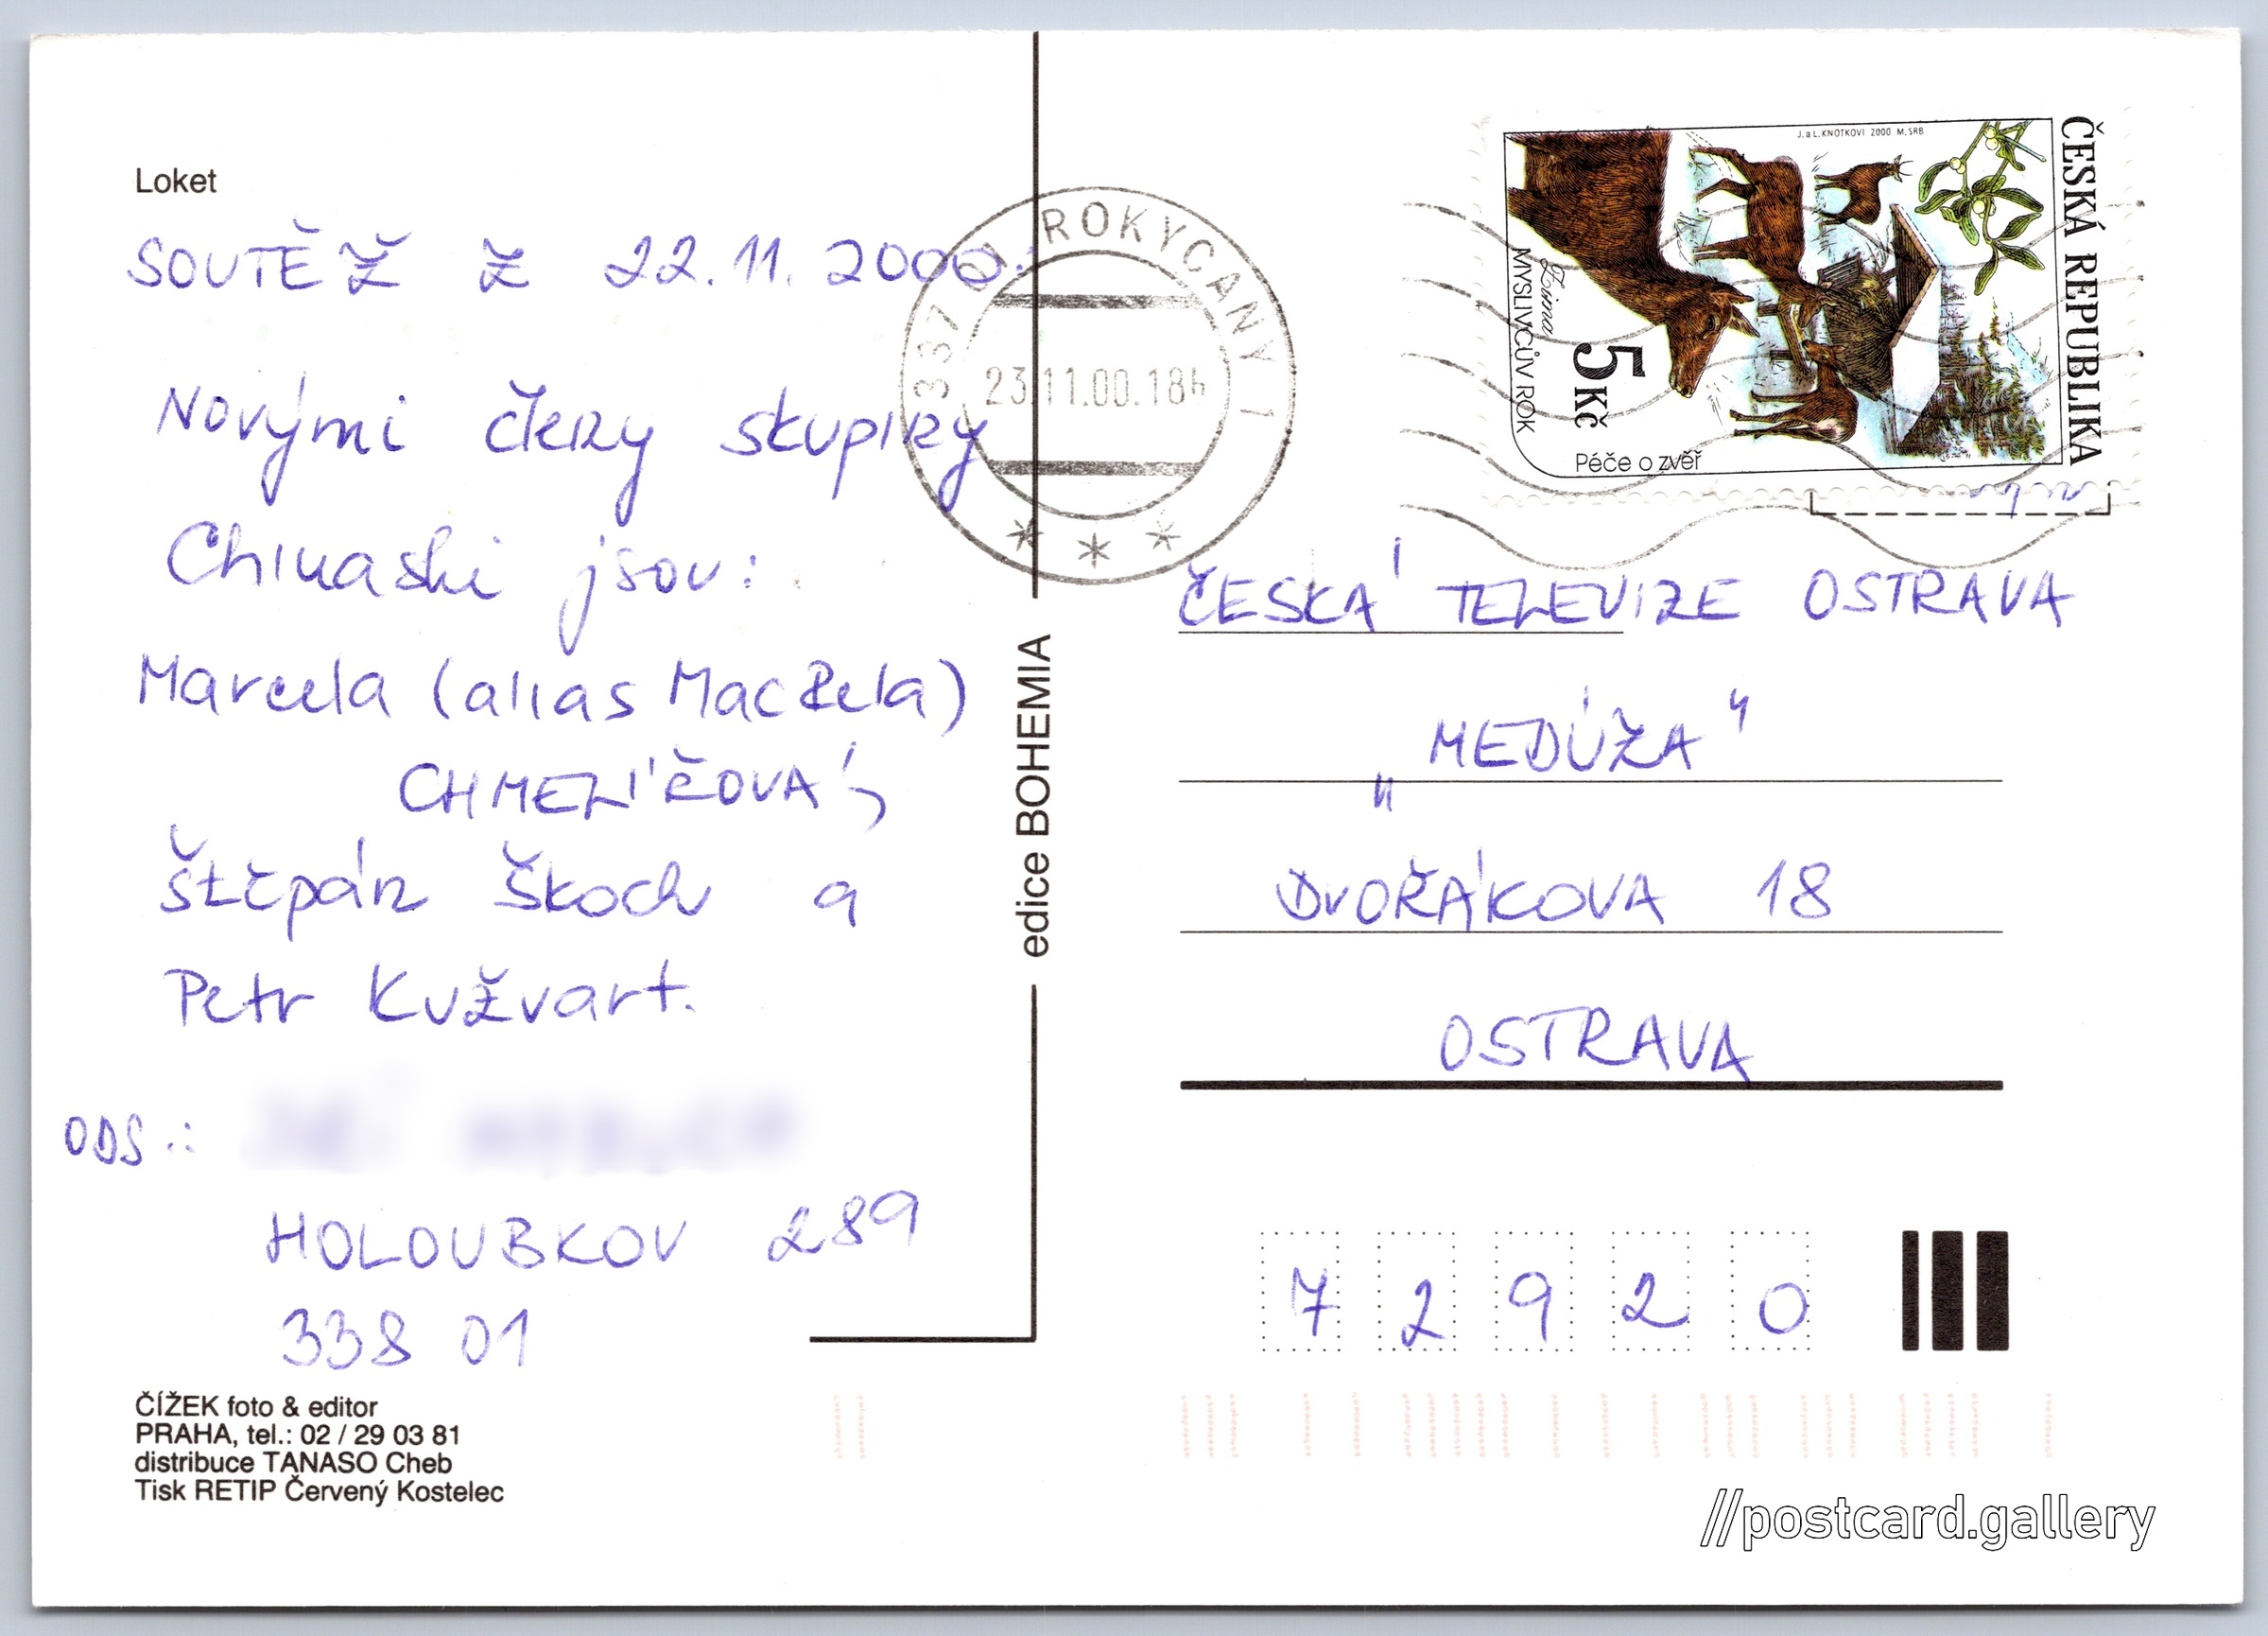 Loket
SOUTĚŽ Z 22.11.2000:
Novými členy skupiny
Chinaski jsou:
Marcela (alias MacBela)
CHMELÍČOVÁ,
Štěpán Škoch a
Petr Kužvart.
ODS.:
HOLOUBKOV 289
338 01
ČÍŽEK foto & editor
PRAHA, tel.: 02 / 29 03 81
distribuce TANASO Cheb
Tisk RETIP Červený Kostelec
edice BOHEMIA
337 01 ROKYCANY 1
23.11.00.18h
ČESKÁ REPUBLIKA
J. a L. KNOTKOVI 2000 M. SRB
Zima
MYSLIVCŮV ROK
5 Kč
Péče o zvěř
ČESKÁ TELEVIZE OSTRAVA
„MEDÚZA"
DVOŘÁKOVA 18
OSTRAVA
7 2 9 2 0
//postcard.gallery